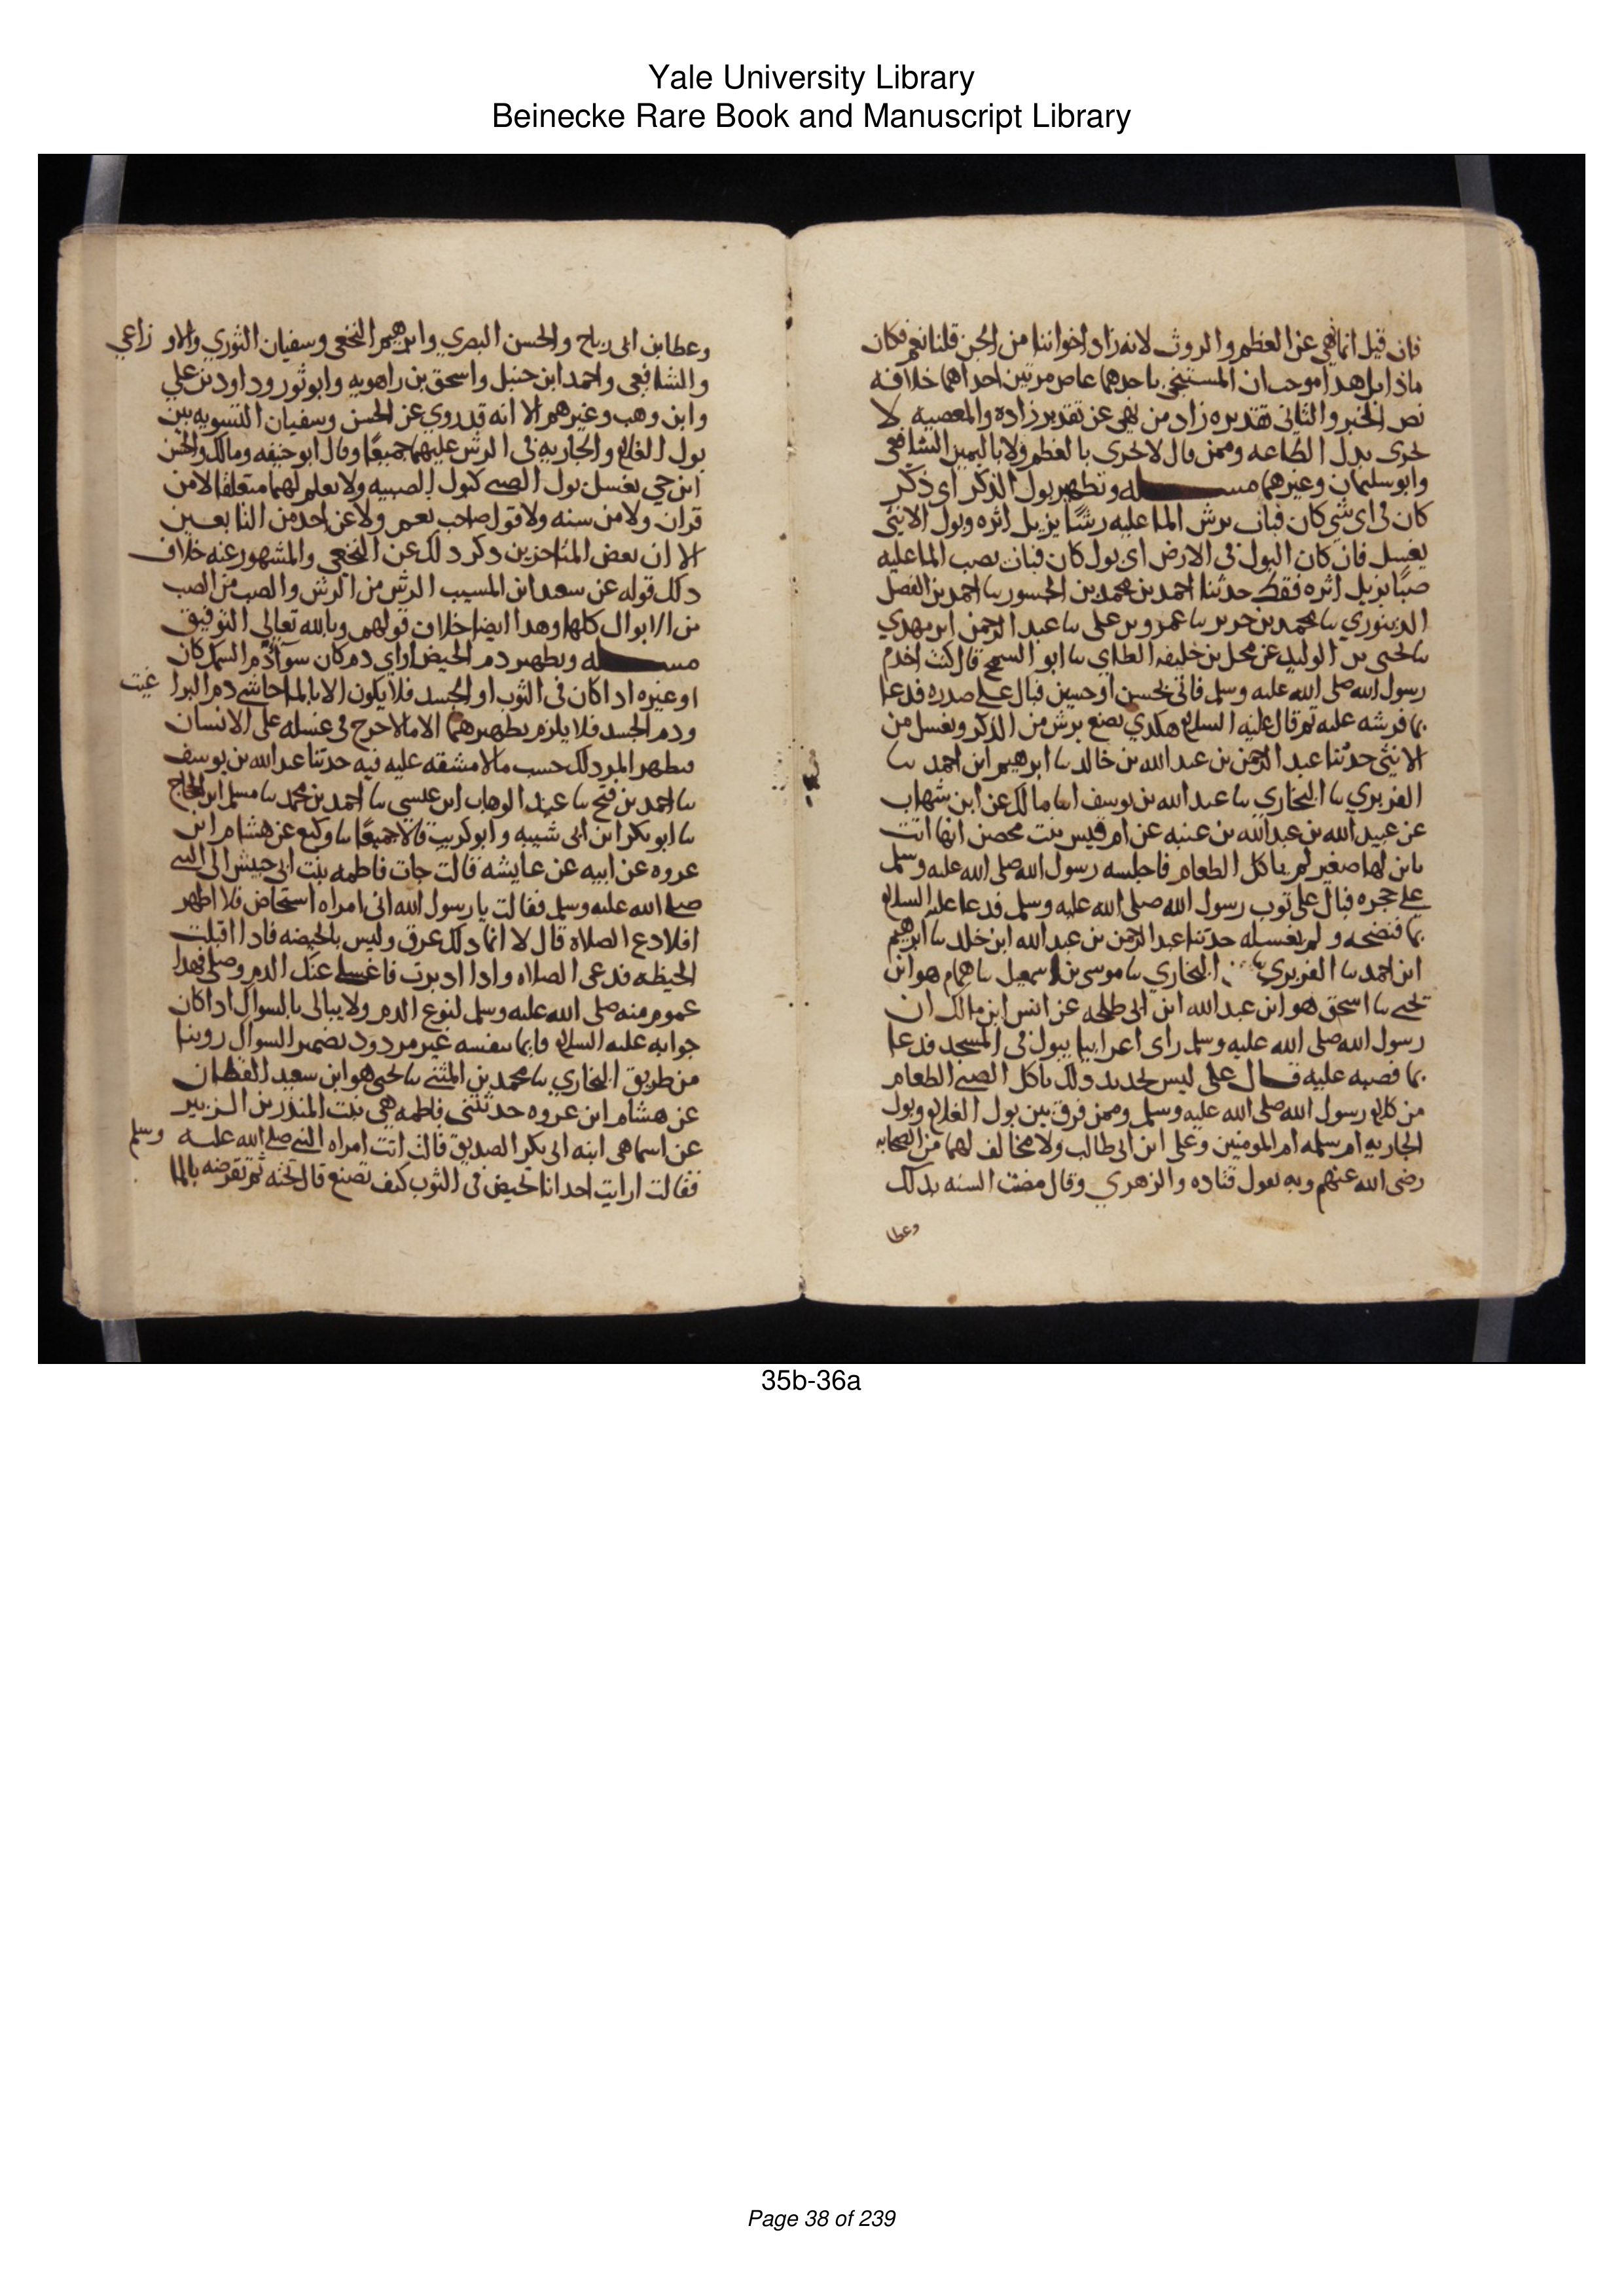 Yale University Library
Beinecke Rare Book and Manuscript Library
فان قيل انما نهى عن العظم والروث لانه زاد اخواننا من الجن قلنا نعم فكان
ماذا بل هذا موجب ان المستنجي باحدهما عاص مرتين احداهما خلافه
نص الخبر والثاني تقذيره زاد من نهي عن تقذير زاده والمعصيه لا
تجزي بدل الطاعه وممن قال لا تجزي بالعظم ولا باليمين الشافعي
وابو سليمان وغيرهما مسله وتطهير بول الذكر اي ذكر
كان في اي شي كان فبان يرش الما عليه رشا يزيل اثره وبول الانثى
يغسل فان كان البول في الارض اي بول كان فبان يصب الما عليه
صبا يزيل اثره فقط حدثنا احمد بن محمد بن الجسور سا احمد بن الفضل
الدينوري سا محمد بن جرير سا عمرو بن علي سا عبد الرحمن ابن مهدي
سا يحيى بن الوليد عن محل بن خليفه الطاي سا ابو السمح قال كنت اخدم
رسول الله صلى الله عليه وسلم فاتي بحسن او حسين فبال على صدره فدعا
بما فرشه عليه ثم قال عليه السلام هكذي يصنع يرش من الذكر ويغسل من
الانثى حدثنا عبد الرحمن بن عبد الله بن خالد سا ابرهيم ابن احمد سا
الفربري سا البخاري سا عبد الله بن يوسف انا مالك عن ابن شهاب
عن عبيد الله بن عبد الله بن عتبه عن ام قيس بنت محصن انها اتت
بابن لها صغير لم ياكل الطعام فاجلسه رسول الله صلى الله عليه وسلم
على حجره فبال على ثوب رسول الله صلى الله عليه وسلم فدعا عليه السلام
بما فنضحه ولم يغسله حدثنا عبد الرحمن بن عبد الله ابن خلد سا ابرهيم
ابن احمد سا الفربري سا البخاري سا موسى بن اسمعيل سا همام هو ابن
يحيى سا اسحق هو ابن عبد الله ابن ابي طلحه عن انس ابن مالك ان
رسول الله صلى الله عليه وسلم راى اعرابيا يبول في المسجد فدعا
بما فصبه عليه قال علي ليس تحديد ذلك باكل الصبي الطعام
من كلام رسول الله صلى الله عليه وسلم وممن فرق بين بول الغلام وبول
الجاريه ام سلمه ام المومنين وعلي ابن ابي طالب ولا مخالف لهما من الصحابه
رضي الله عنهم وبه يقول قتاده والزهري وقال مضت السنه بذلك
وعطا
وعطا بن ابي رباح والحسن البصري وابرهيم النخعي وسفيان الثوري والاوزاعي
والشافعي واحمد ابن حنبل واسحق بن راهويه وابو ثور وداود بن علي
وابن وهب وغيرهم الا انه قد روي عن الحسن وسفيان التسويه بين
بول الغلام والجاريه في الرش عليهما جميعا وقال ابو حنيفه ومالك والحسن
ابن حي يغسل بول الصبي كبول الصبيه ولا نعلم لهما متعلقا لا من
قران ولا من سنه ولا قول صاحب نعم ولا عن احد من التابعين
الا ان بعض المتاخرين ذكر ذلك عن النخعي والمشهور عنه خلاف
ذلك قوله عن سعد ابن المسيب الرش من الرش والصب من الصب
من الابوال كلها وهذا ايضا خلاف قولهم وبالله تعالى التوفيق
مسله وتطهير دم الحيض او اي دم كان سوا دم السمك كان
او غيره اذا كان في الثوب او الجسد فلا يكون الا بالما حاشى دم البراغيث
ودم الجسد فلا يلزم تطهيرهما الا ما لا حرج في غسله على الانسان
فيطهر المر ذلك حسب ما لا مشقه عليه فيه حدثنا عبد الله بن يوسف
سا احمد بن فتح سا عبد الوهاب ابن عيسى سا احمد بن محمد سا مسلم ابن الحجاج
سا ابو بكر ابن ابي شيبه وابو كريب قالا جميعا سا وكيع عن هشام ابن
عروه عن ابيه عن عايشه قالت جات فاطمه بنت ابي حبيش الى النبي
صلى الله عليه وسلم فقالت يا رسول الله اني امراه استحاض فلا اطهر
افلا دع الصلاه قال لا انما ذلك عرق وليس بالحيضه فاذا اقبلت
الحيظه فدعي الصلاه واذا ادبرت فاغسلي عنك الدم وصلي فهذا
عموم منه صلى الله عليه وسلم لنوع الدم ولا يبالي بالسوال اذا كان
جوابه عليه السلام قايما بنفسه غير مردود بضمير السوال روينا
من طريق البخاري سا محمد بن المثنى سا يحيى هو ابن سعيد القطان
عن هشام ابن عروه حدثتني فاطمه هي بنت المنذر بن الزبير
عن اسما هي ابنه ابي بكر الصديق قالت اتت امراه النبي صلى الله عليه وسلم
فقالت ارايت احدانا تحيض في الثوب كيف تصنع قال تحته ثم تقرضه بالما
35b-36a
Page 38 of 239